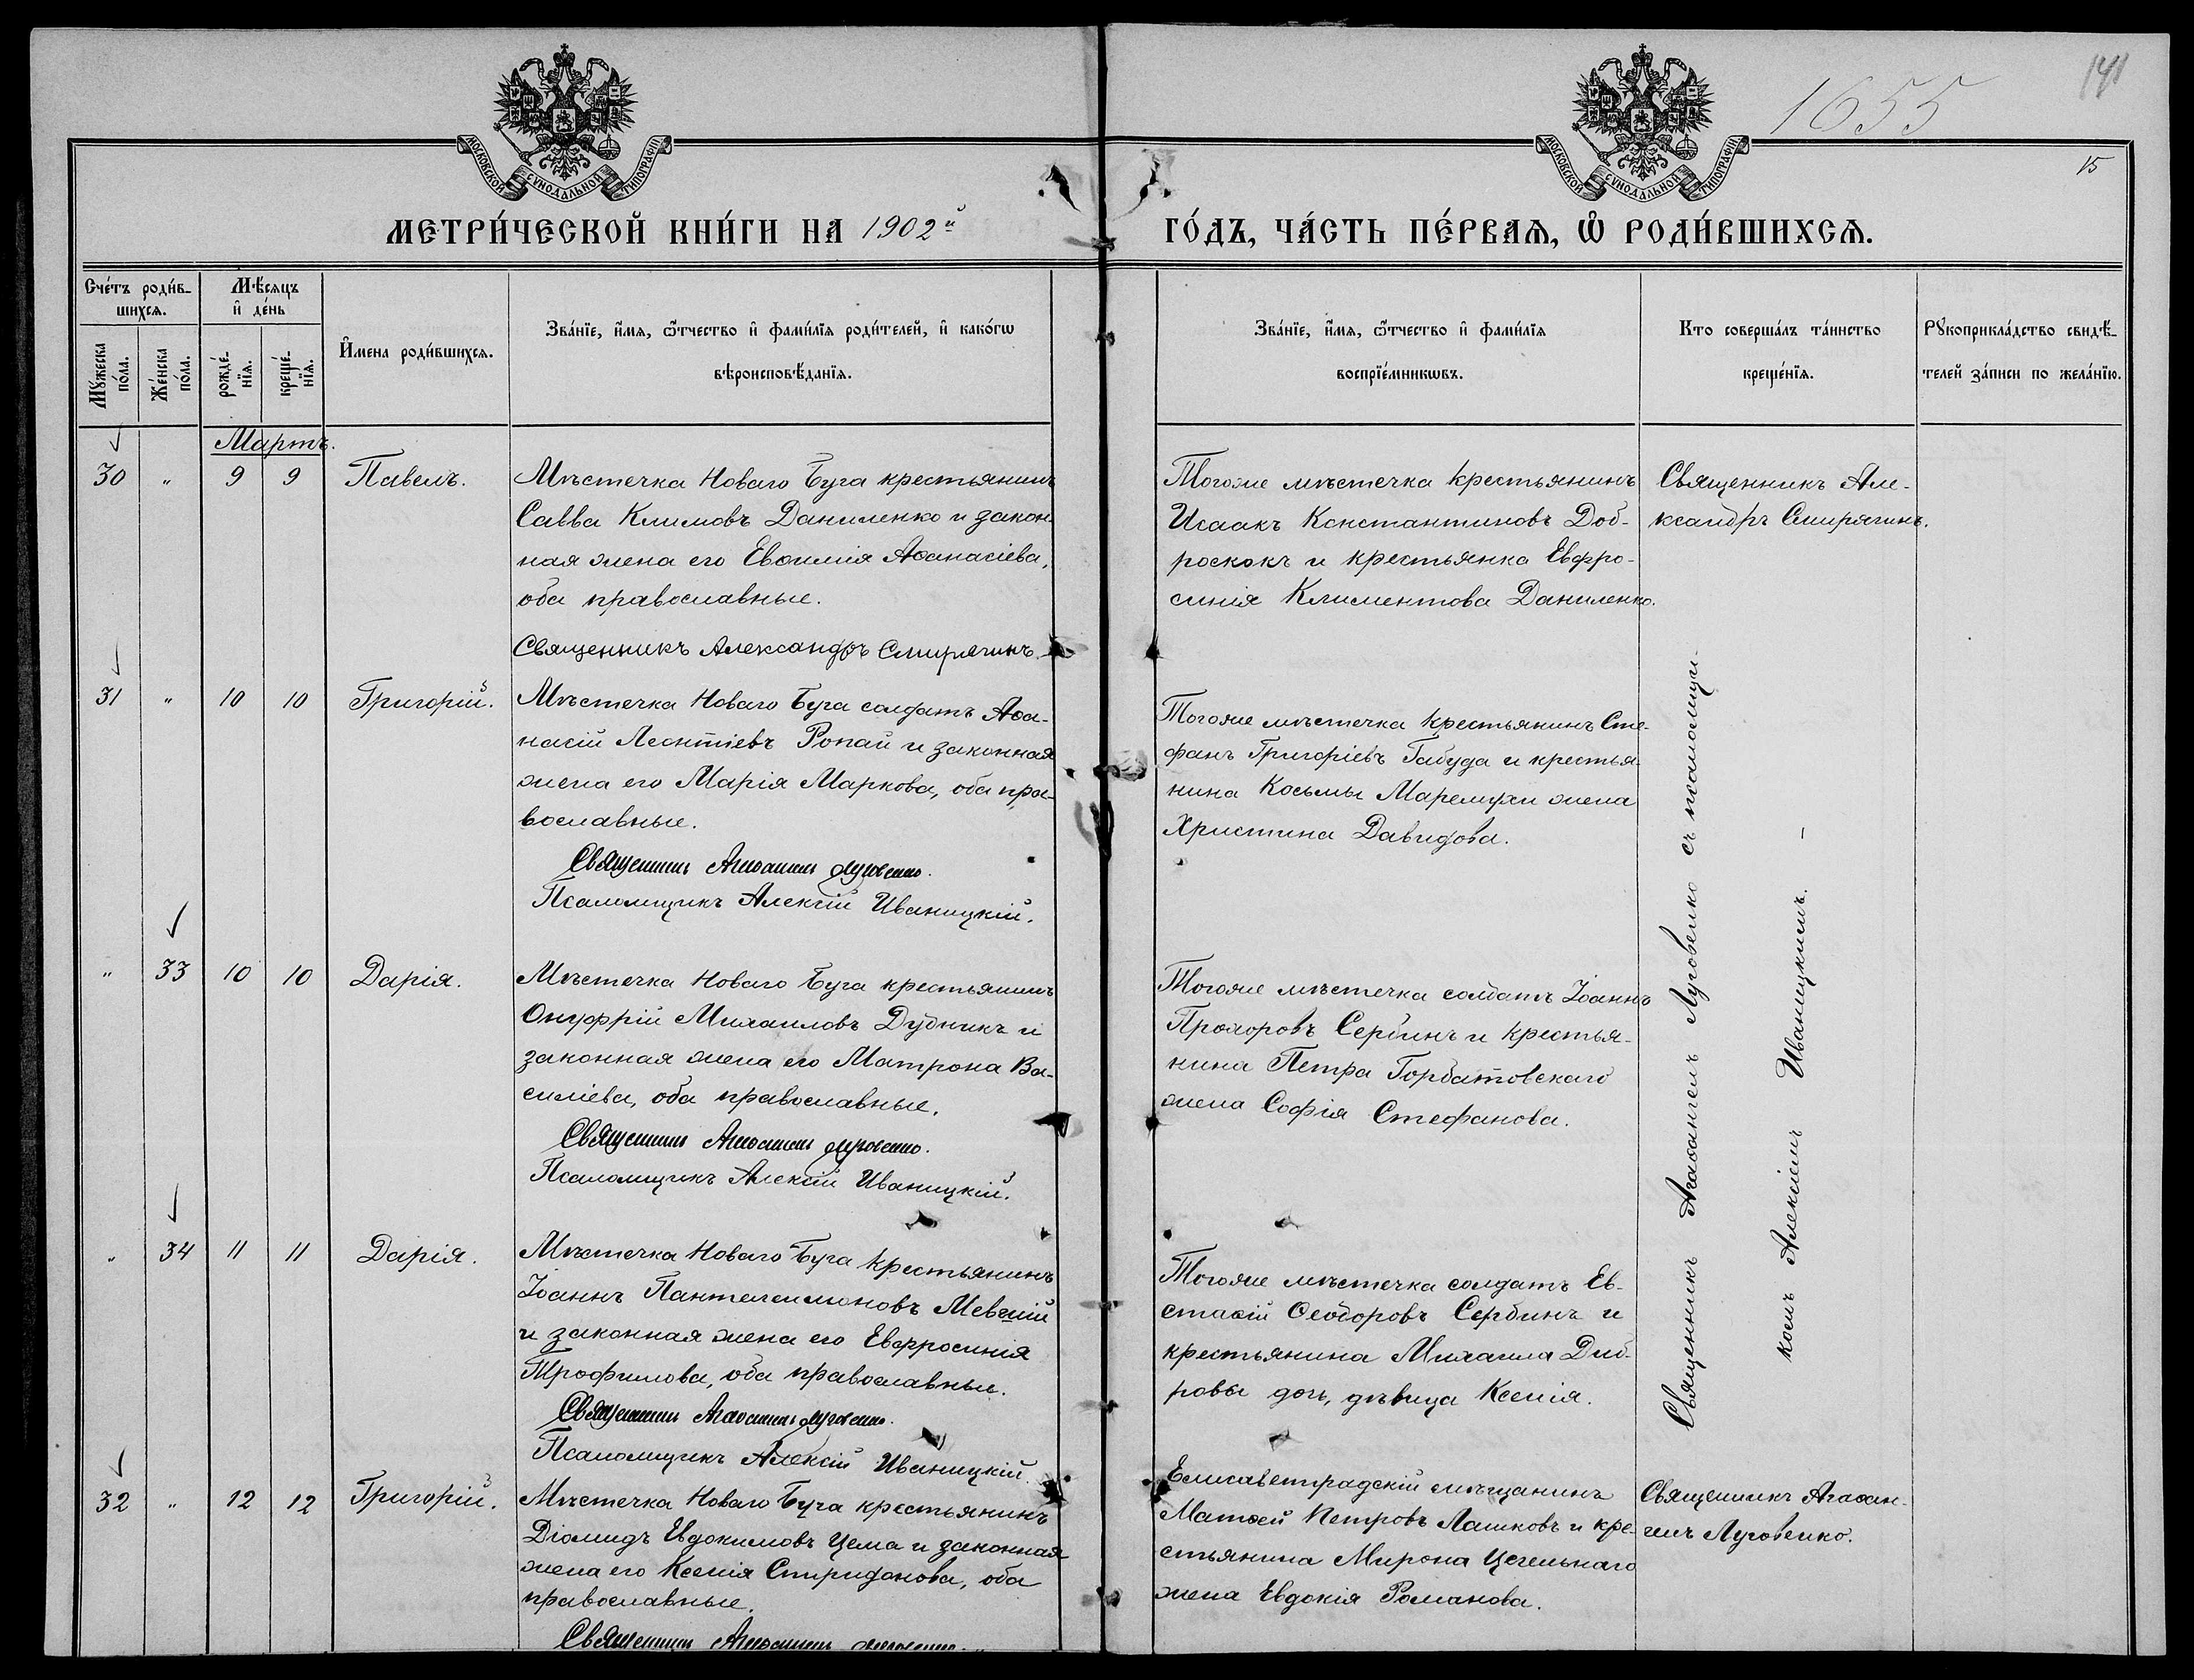 1655
141
15
МОСКОВСКОЙ СѴНОДАЛЬНОЙ ТИПОГРАФІИ.
МОСКОВСКОЙ СѴНОДАЛЬНОЙ ТИПОГРАФІИ.
МЕТРИ́ЧЕСКОЙ КНИ́ГИ НА 1902й
ГО́ДЪ, ЧА́СТЬ ПЕ́РВАѦ, Ѡ҆ РОДИ́ВШИХСѦ.
Сче́тъ роди́в-
шихсѧ.
Мꙋ́жеска по́ла.
Же́нска по́ла.
Мѣ́сѧцъ
и҆ де́нь
рожде́-
нїѧ.
креще́-
нїѧ.
И҆мена роди́вшихсѧ.
Зва́нїе, и҆́мѧ, ѻ҆́тчество и҆ фами́лїѧ роди́телей, и҆ како́гѡ
вѣроисповѣ́данїѧ.
Зва́нїе, и҆́мѧ, ѻ҆́тчество и҆ фами́лїѧ
воспрїе́мникѡвъ.
Кто соверша́лъ та́инство
креще́нїѧ.
Рꙋкоприкла́дство свидѣ́-
телей за́писи по жела́нїю.
Мартъ.
30 " 9 9 Павелъ.
Мѣстечка Новаго Буга крестьянинъ
Савва Климовъ Даниленко и закон-
ная жена его Евѳимія Аѳанасіева,
оба православные.
Священникъ Александръ Смирягинъ.
Тогоже мѣстечка крестьянинъ
Исаакъ Константиновъ Доб-
роскокъ и крестьянка Евфро-
синія Климентова Даниленко.
Священникъ Але-
ксандръ Смирягинъ.
31 " 10 10 Григорій.
Мѣстечка Новаго Буга солдатъ Аѳа-
насій Леонтіевъ Ропай и законная
жена его Марія Маркова, оба пра-
вославные.
Священникъ Агаѳангелъ Луговенко.
Псаломщикъ Алексій Иваницкій.
Тогоже мѣстечка крестьянинъ Сте-
фанъ Григоріевъ Габуда и крестья-
нина Косьмы Маремухи жена
Христина Давидова.
" 33 10 10 Дарія.
Мѣстечка Новаго Буга крестьянинъ
Онуфрій Михаиловъ Дубникъ и
законная жена его Матрона Ва-
силіева, оба православные.
Священникъ Агаѳангелъ Луговенко.
Псаломщикъ Алексій Иваницкій.
Тогоже мѣстечка солдатъ Іоаннъ
Прохоровъ Сербинъ и крестья-
нина Петра Горбатовскаго
жена Софія Стефанова.
" 34 11 11 Дарія.
Мѣстечка Новаго Буга крестьянинъ
Іоаннъ Пантелеимоновъ
и законная жена его Евфросинія
Трофимова, оба православные.
Священникъ Агаѳангелъ Луговенко.
Псаломщикъ Алексій Иваницкій.
Тогоже мѣстечка солдатъ Ев-
стаѳій Ѳеодоровъ Сербинъ и
крестьянина Михаила Диб-
ровы дочь, дѣвица Ксенія.
Священникъ Агаѳангелъ Луговенко съ псаломщи-
комъ Алексіемъ Иваницкимъ. —
32 " 12 12 Григорій.
Мѣстечка Новаго Буга крестьянинъ
Діомидъ Евдокимовъ Цема и законная
жена его Ксенія Спиридонова, оба
православные.
Священникъ Агаѳангелъ Луговенко.
Елисаветградскій мѣщанинъ
Матѳей Петровъ Лашковъ и кре-
стьянина Мирона Цегельнаго
жена Евдокія Романова.
Священникъ Агаѳан-
гелъ Луговенко.